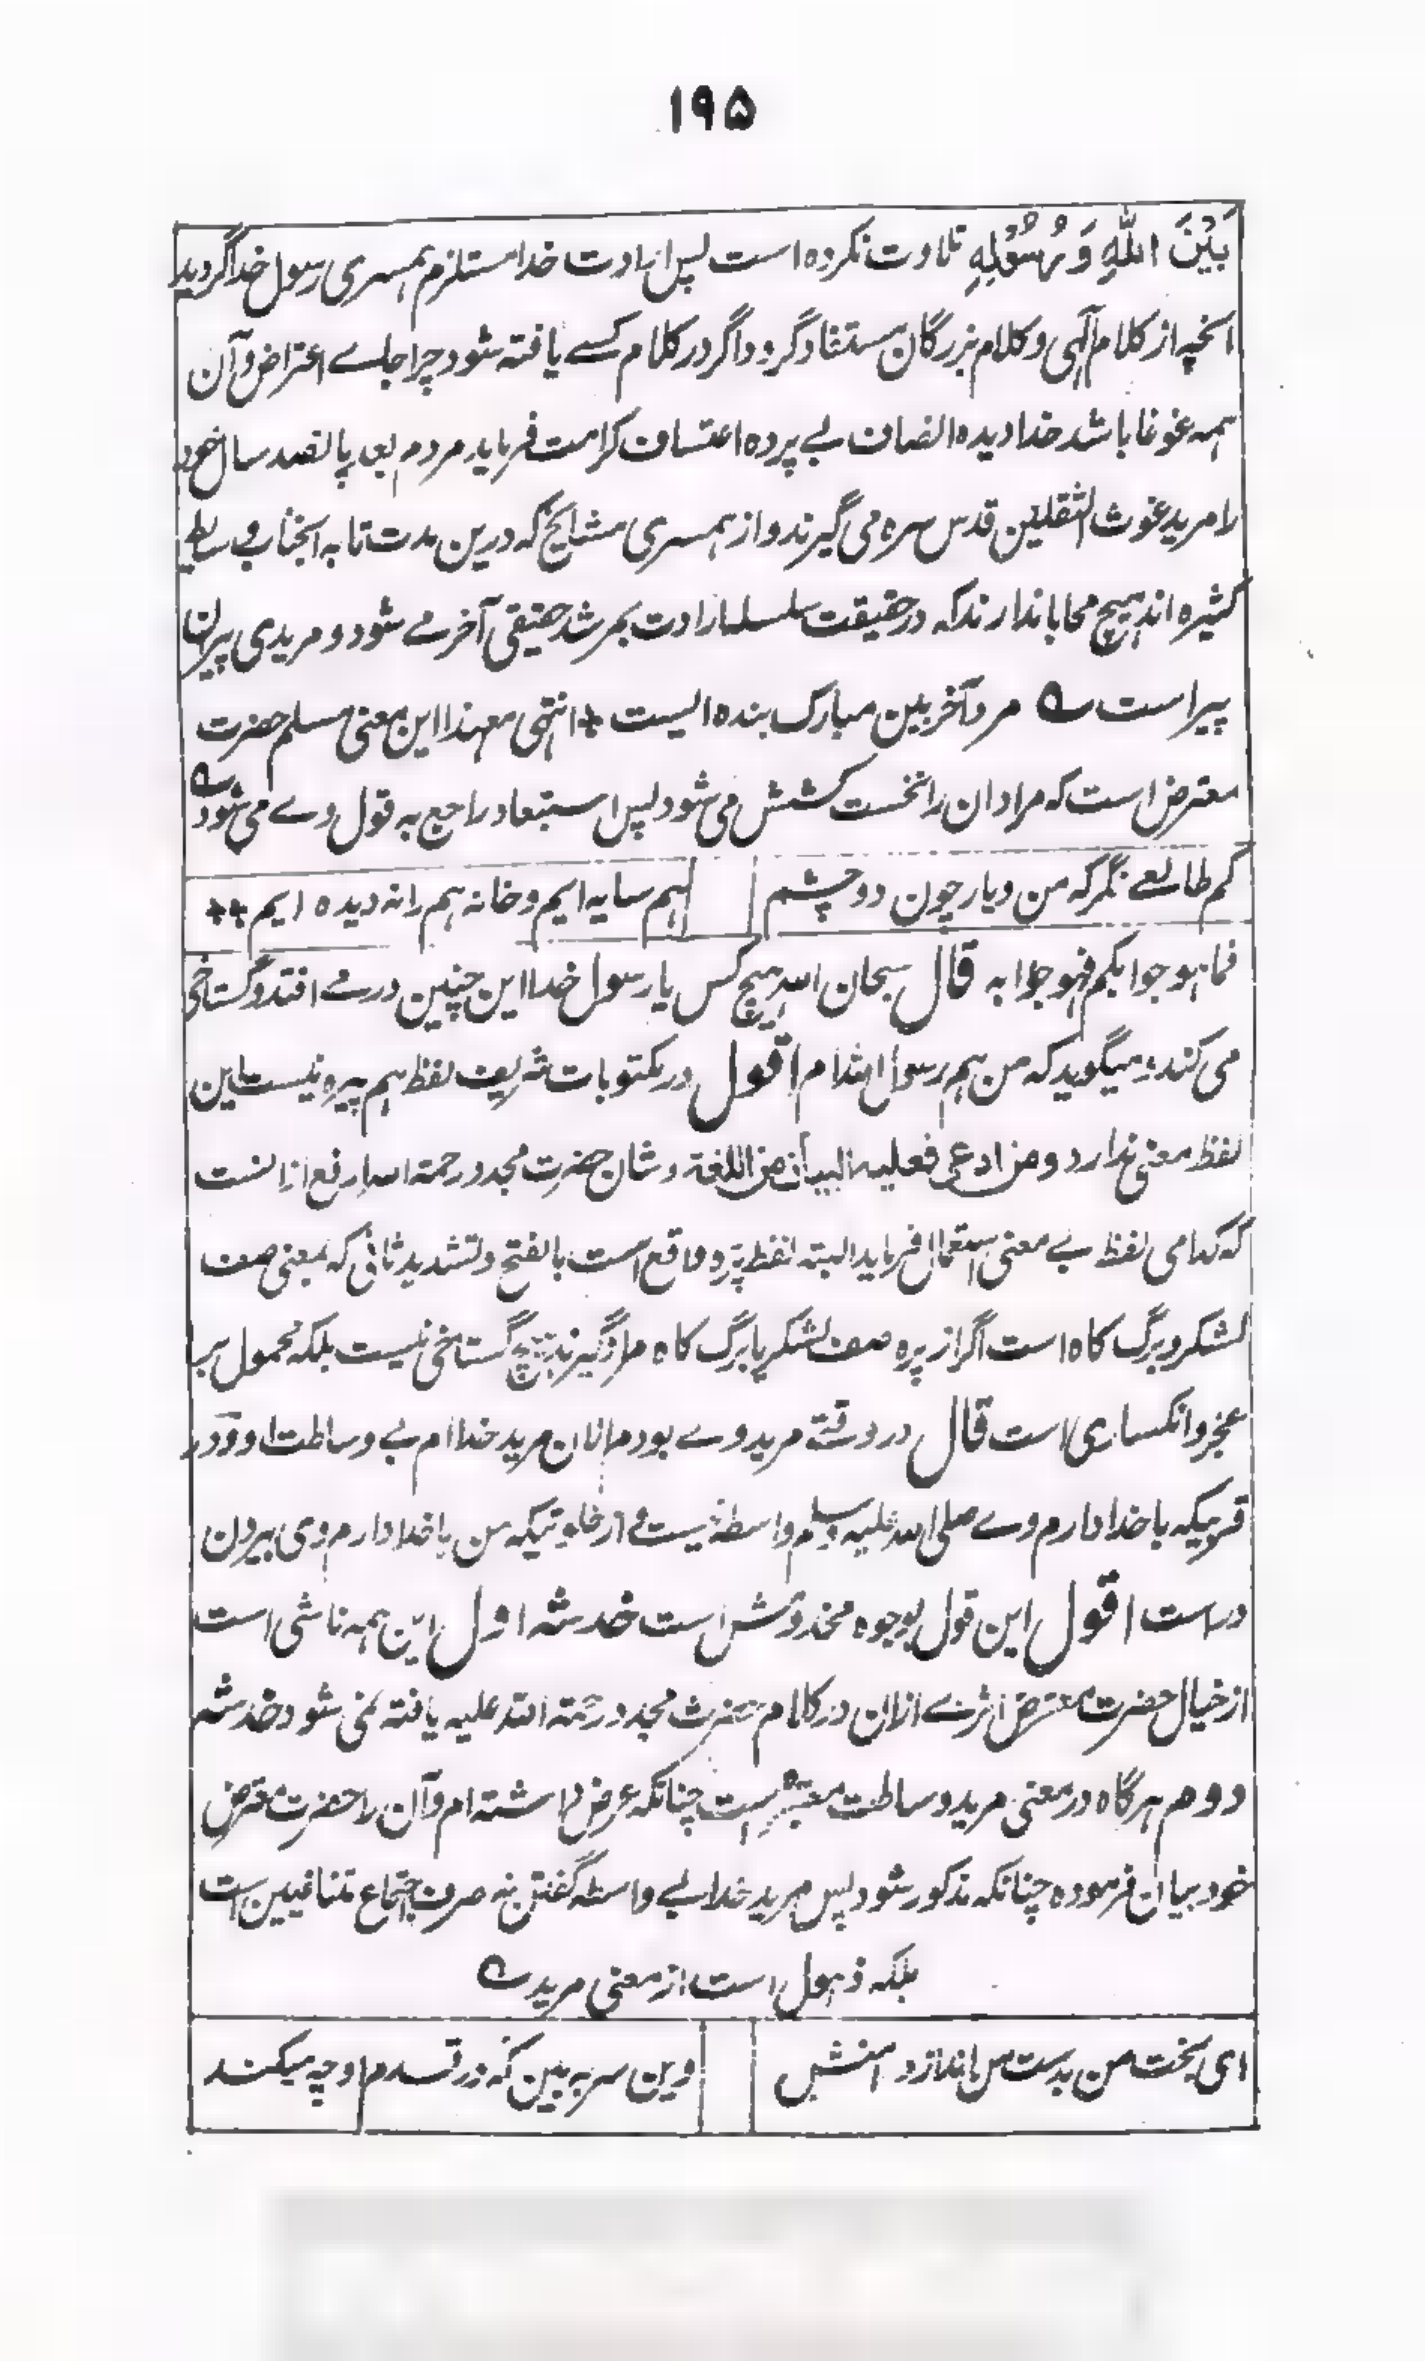 ۱۹۵
بَیْنَ اللّٰهِ وَرُسُلِهِ تلاوت نکرده است پس ارادت خدا مستلزم همسری رسول خدا گردید
انچه از کلام آلهی و کلام بزرگان مستفاد گردد اگر در کلام کسے یافته شود چرا جاے اعتراض و آن
همه غوغا باشد خدا دیده انصاف بے پرده اعتساف کرامت فرماید مردم بعد پانصد سال خود
را مرید غوث الثقلین قدس سره می گیرند و از همسری مشایخ که درین مدت تا به آنجناب وسایط
کثیره اند هیچ محابا ندارند که در حقیقت سلسله ارادت بمرشد حقیقی آخر مے شود و مریدی پیران
پیر است ؎ مرد آخر بین مبارک بنده ایست * انتهی معهذا این معنی مسلم حضرت
معترض است که مرادان را نخست کشش می شود پس استبعاد راجع به قول وے می شود ؎
کم طالعے نگر که من و یار چون دو چشم همسایه ایم و خانه هم را نه دیده ایم **
فما هو جوابکم فهو جوابه قال سبحان الله هیچ کس یا رسول خدا این چنین در مے افتد و گستاخی
می کند و میگوید که من هم رسول الله ام اقول در مکتوبات شریف لفظ هم پیره نیست این
لفظ معنی ندارد و من ادعی فعلیه البیان من اللغة و شان حضرت مجدد رحمة الله ارفع ازانست
که کدامی لفظ بے معنی استعمال فرماید البته لفظ پره واقع است بالفتح و تشدید ثانی که بمعنی صف
لشکر و برگ کاه است اگر از پره صف لشکر یا برگ کاه مراد گیرند هیچ گستاخی نیست بلکه محمول بر
عجز و انکساری است قال در وقتے مرید وے بودم الان مرید خدا ام بے وساطت او و در
قربیکه با خدا دارم وے صلی الله علیه وسلم واسطه نیست و از خلوتیکه من با خدا دارم وی بیرون
در است اقول این قول بوجوه مخدوش است خدشه اول این همه ناشی است
از خیال حضرت معترض اثرے ازان در کلام حضرت مجدد رحمة الله علیه یافته نمی شود خدشه
دوم هرگاه در معنی مرید وساطت معتبر است چنانکه عرض داشته ام و آن را حضرت معترض
خود بیان فرموده چنانکه مذکور شود پس مرید خدا بے واسطه گفتن نه صرف اجتماع متنافیین است
بلکه ذهول است از معنی مرید ؎
ای بخت من بدست من انداز دامنش وین سر به بین که در قدم او چه میکند